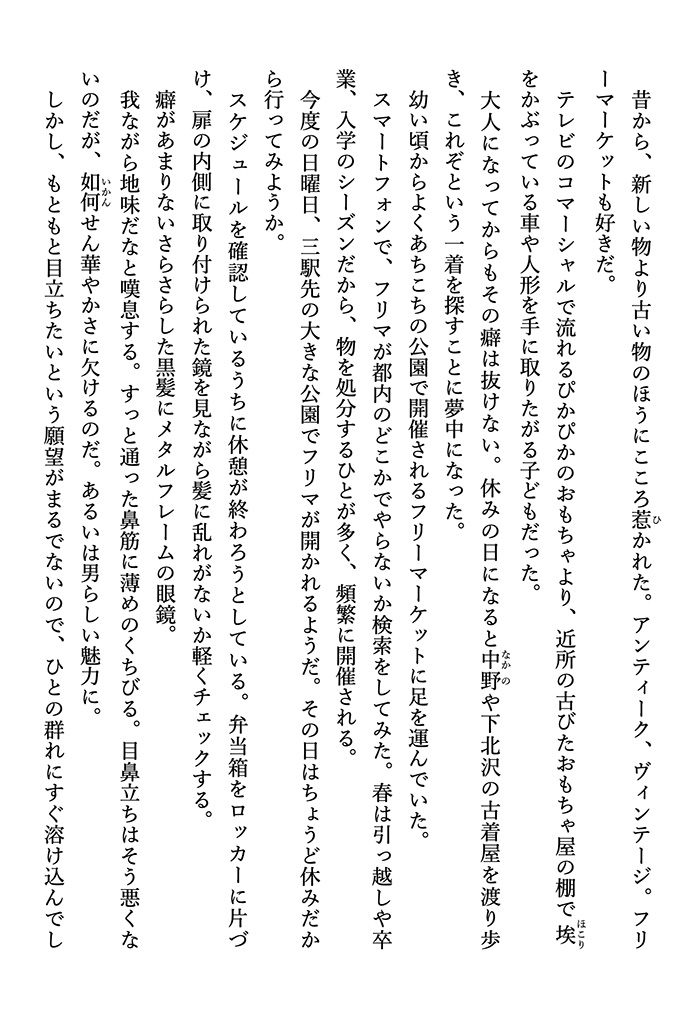 昔から、新しい物より古い物のほうにこころ惹かれた。アンティーク、ヴィンテージ。フリ
ーマーケットも好きだ。
　テレビのコマーシャルで流れるぴかぴかのおもちゃより、近所の古びたおもちゃ屋の棚で埃
をかぶっている車や人形を手に取りたがる子どもだった。
　大人になってからもその癖は抜けない。休みの日になると中野や下北沢の古着屋を渡り歩
き、これぞという一着を探すことに夢中になった。
　幼い頃からよくあちこちの公園で開催されるフリーマーケットに足を運んでいた。
　スマートフォンで、フリマが都内のどこかでやらないか検索をしてみた。春は引っ越しや卒
業、入学のシーズンだから、物を処分するひとが多く、頻繁に開催される。
　今度の日曜日、三駅先の大きな公園でフリマが開かれるようだ。その日はちょうど休みだか
ら行ってみようか。
　スケジュールを確認しているうちに休憩が終わろうとしている。弁当箱をロッカーに片づ
け、扉の内側に取り付けられた鏡を見ながら髪に乱れがないか軽くチェックする。
　癖があまりないさらさらした黒髪にメタルフレームの眼鏡。
　我ながら地味だなと嘆息する。すっと通った鼻筋に薄めのくちびる。目鼻立ちはそう悪くな
いのだが、如何せん華やかさに欠けるのだ。あるいは男らしい魅力に。
　しかし、もともと目立ちたいという願望がまるでないので、ひとの群れにすぐ溶け込んでし